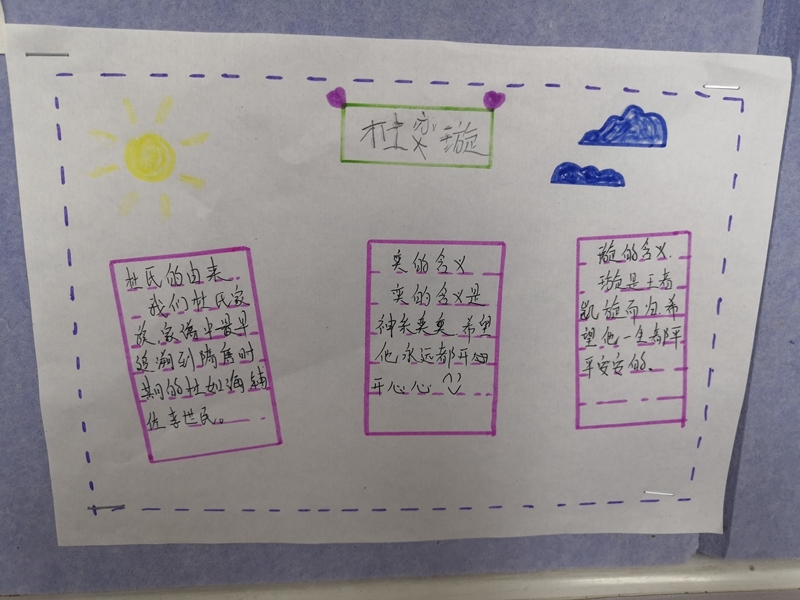 杜奕璇
杜氏的由来
我们杜氏家
族家谱中最早
追溯到隋唐时
期的杜如海辅
佐李世民。
奕的含义
奕的含义是
神采奕奕希望
他永远都开
开心心
璇的含义
璇是王者
凯旋而归.希
望他一生都平
平安安的.